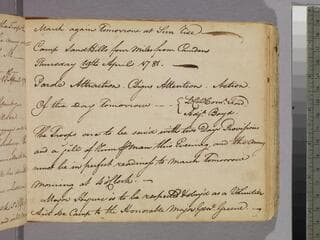 March again Tomorrow at Sun rise
Camp Sandhills four Miles from Camden
Thursday 19th April 1781.
Parole Attraction. CSigns Attention. Action
Of the Day Tomorrow — Lt. Coll. Ford
Majr. Boyd
The Troops are to be serv'd with two Days Provisions
and a jill of Rum P Man this Evening and the Army
must be in perfect readiness to March Tomorrow
Morning at 4 oClock. —
Major is to be respected & obey'd as a Volunteer
Aid de Camp to the Honorable Major Genl. Greene.